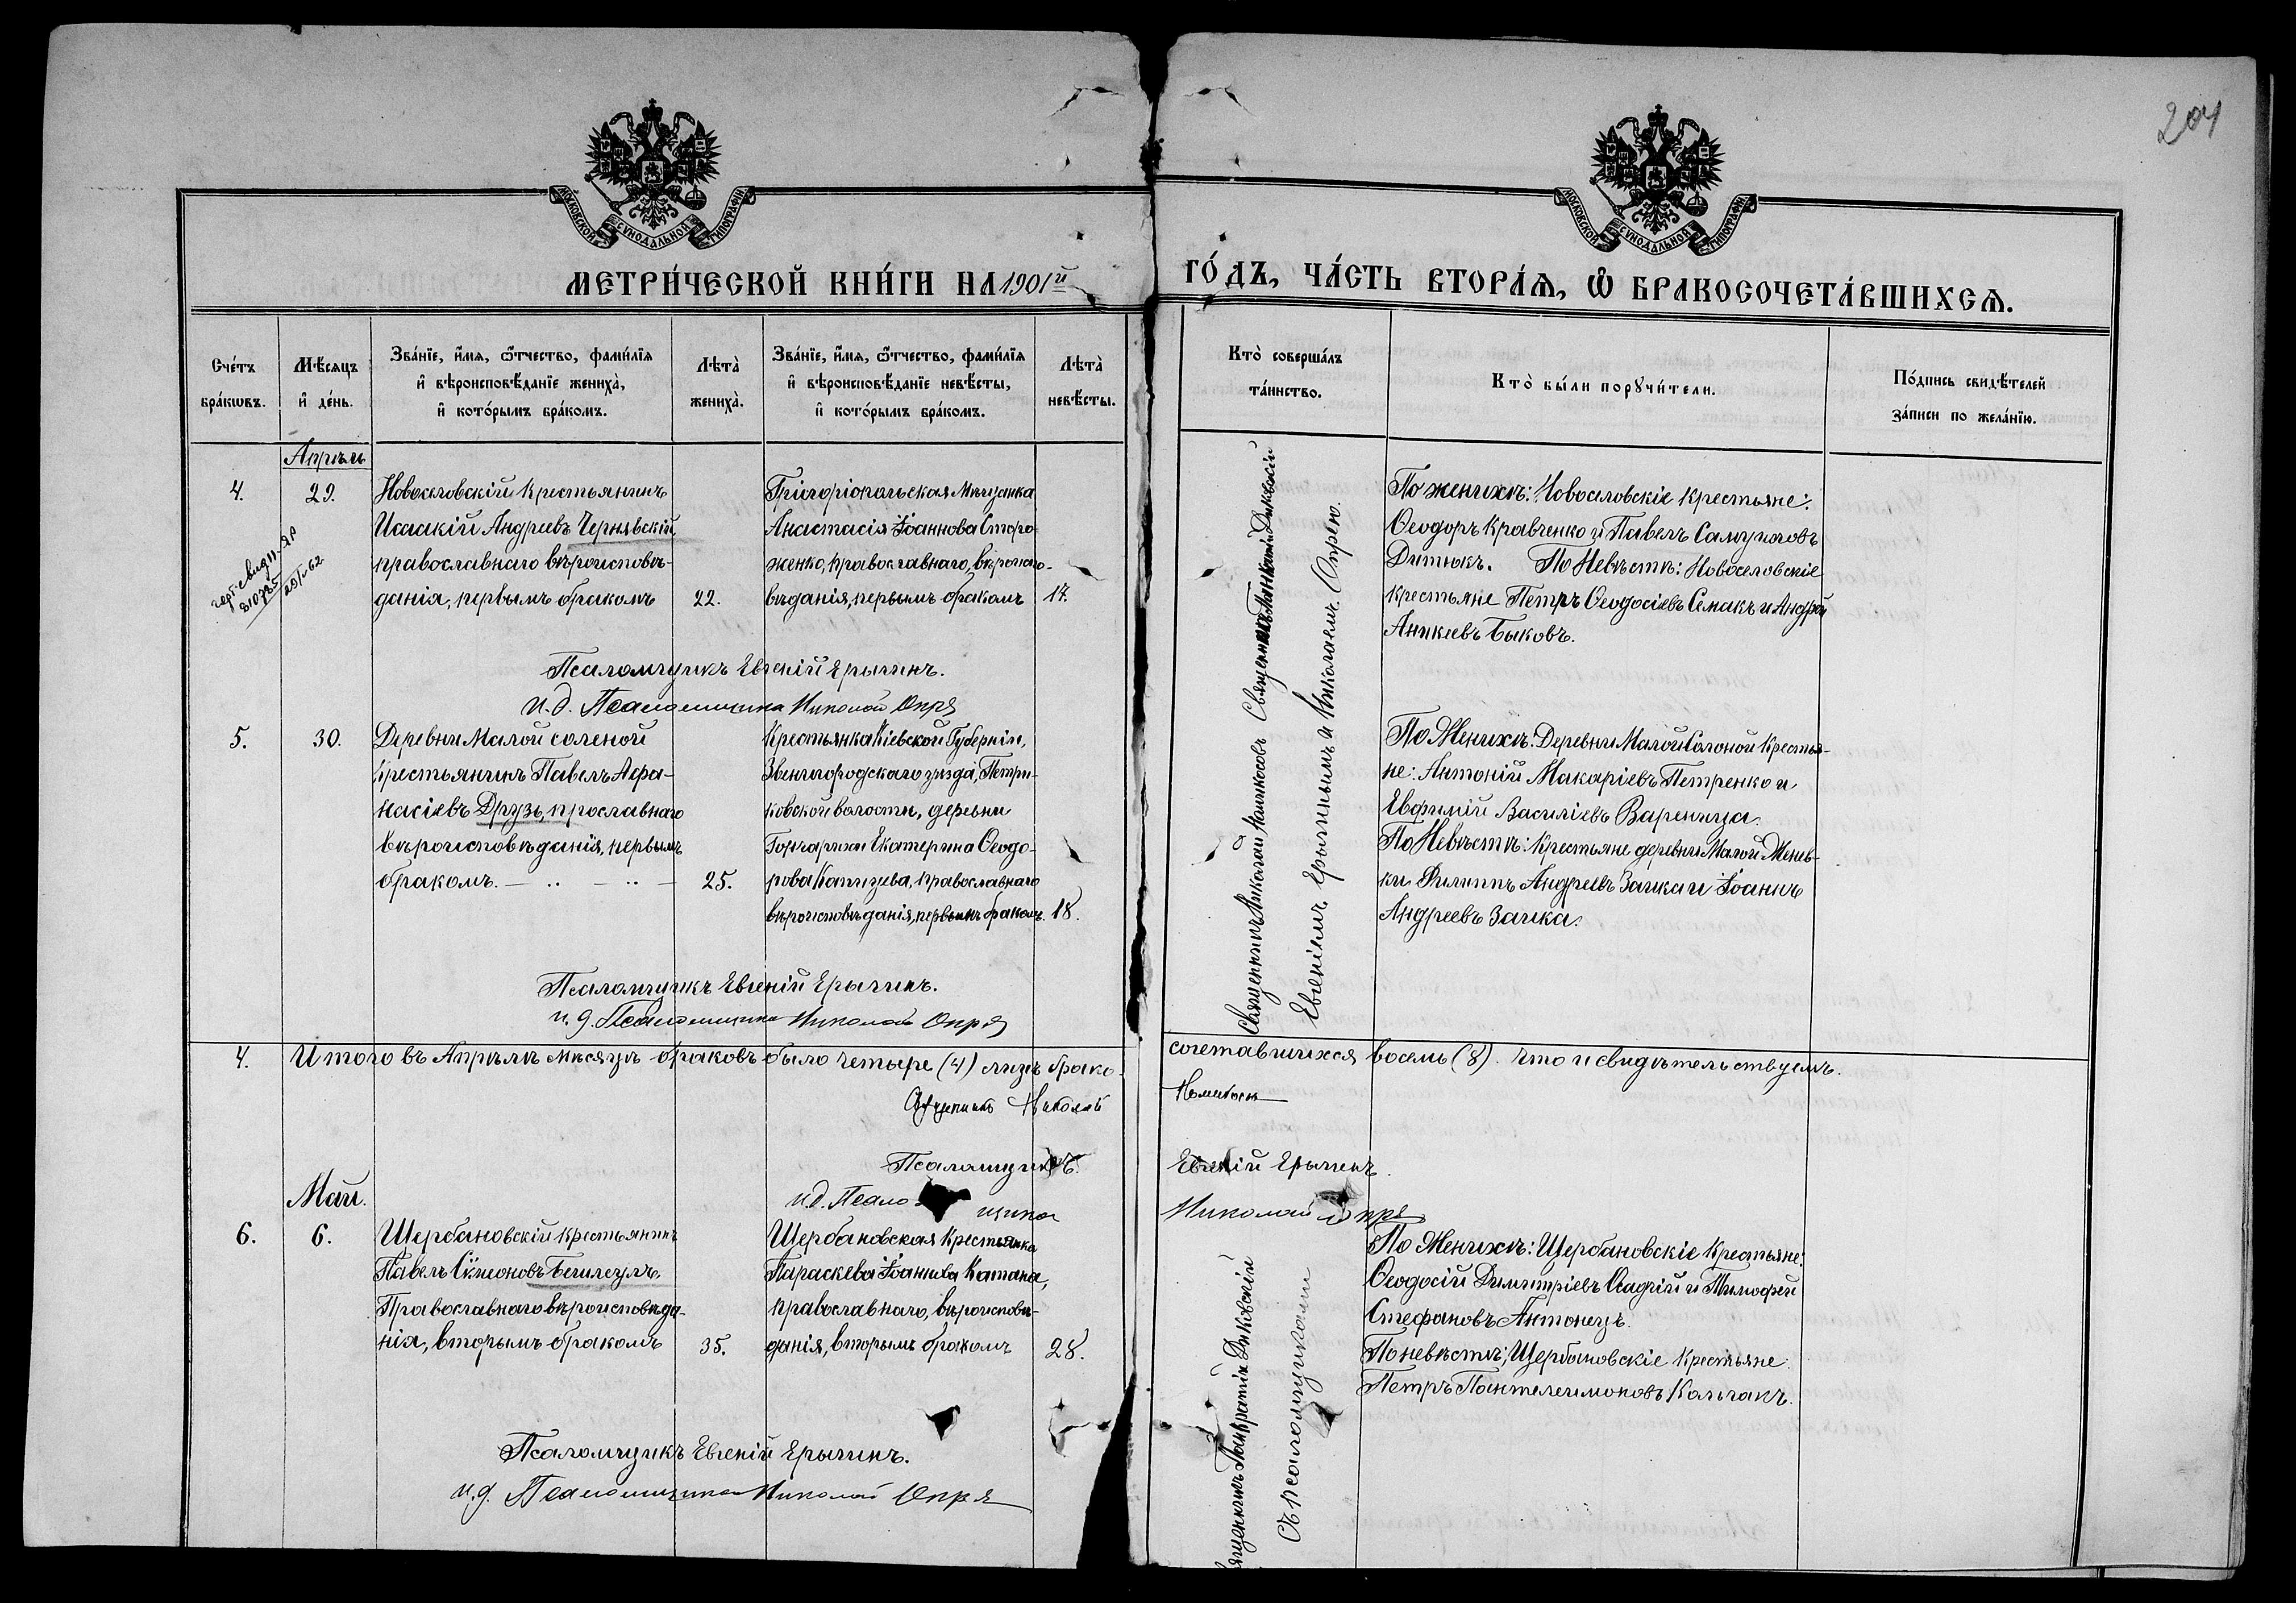 204
МОСКОВСКОЙ СѴНОДАЛЬНОЙ ТИПОГРАФІИ
МОСКОВСКОЙ СѴНОДАЛЬНОЙ ТИПОГРАФІИ
МЕТРИ́ЧЕСКОЙ КНИ́ГИ НА 1901й
ГО́ДЪ, ЧА́СТЬ ВТОРА́Я, Ѽ БРАКОСОЧЕТА́ВШИХСЯ.
Сче́тъ бра́кѡвъ.
Мѣ́сяцъ и҆ де́нь.
Зва́нїе, и҆́мя, ѻ҆́тчество, фами́лїя и҆ вѣроисповѣ́данїе жениха̀, и҆ кото́рымъ бра́комъ.
Лѣта̀ жениха̀.
Зва́нїе, и҆́мя, ѻ҆́тчество, фами́лїя и҆ вѣроисповѣ́данїе невѣ́сты, и҆ кото́рымъ бра́комъ.
Лѣта̀ невѣ́сты.
Кто̀ соверша́лъ та́инство.
Кто̀ бы́ли порꙋчи́тели.
По́дпись свидѣ́телей за́писи по жела́нїю.
Апрѣль
4.
29.
Новоселовскій крестьянинъ
Исаакій Андреевъ Чернявскій,
православнаго вѣроисповѣ-
данія, первымъ бракомъ
22.
Григоріопольская Мѣщанка
Анастасія Іоаннова Сторо-
женко, православнаго, вѣроиспо-
вѣданія, первымъ бракомъ
17.
По женихѣ: Новоселовскіе крестьяне:
Ѳеодоръ Кравченко и Павелъ Самуиловъ
Дитюкъ. По Невѣстѣ: Новоселовскіе
крестьяне Петръ Ѳеодосіевъ Семакъ и Андрей
Аникіевъ Быковъ.
Псаломщикъ Евгеній Ерычинъ.
и.д. Псаломщика Николай Опря
5.
30.
Деревни Малой соленой
крестьянинъ Павелъ Афа-
насіевъ Друзь, прославнаго
вѣроисповѣданія, первымъ
бракомъ.
25.
Крестьянка Кіевской Губерніи,
Звенигородскаго уѣзда, Петри-
ковской волости, деревни
Гончарихи Екатерина Ѳеодо-
рова, православнаго
вѣроисповѣданія, первымъ бракомъ.
18.
Священникъ Николай
Священникъ Панкратій Диковскій
Евгеніемъ Ерычинымъ и Николаемъ Опрею.
По Женихѣ: Деревни Малой Солоной Крестья-
не: Антоній Макаріевъ Петренко и
Евфимій Василіевъ Вареница.
По Невѣстѣ: Крестьяне деревни Малой
Филиппъ Андреевъ Заика и Іоаннъ
Андреевъ Заика.
Псаломщикъ Евгеній Ерычинъ.
и.д. Псаломщика Николай Опря
4.
Итого въ Апрѣлѣ мѣсяцѣ браковъ было четыре (4) лицъ брако-
сочетавшихся восемь (8). Что и свидѣтельствуемъ.
Священникъ Николай
Псаломщикъ Евгеній Ерычинъ.
и.д. Псало щика Николай Опря
Май.
6.
6.
Щербановскій крестьянинъ
Павелъ Симеоновъ
Православнаго вѣроисповѣда-
нія, вторымъ бракомъ
35.
Щербановская Крестьянка
Параскева Іоаннова Катана,
православнаго, вѣроисповѣ-
данія, вторымъ бракомъ
28.
Священникъ Панкратій Диковскій
Съ псаломщиками
По Женихѣ: Щербановскіе Крестьяне:
Ѳеодосій Димитріевъ Осадчій и Тимофей
Стефановъ Антонецъ.
По невѣстѣ; Щербановскіе Крестьяне:
Петръ Пантелеимоновъ Колчакъ.
Псаломщикъ Евгеній Ерычинъ.
и.д. Псаломщика Николай Опря